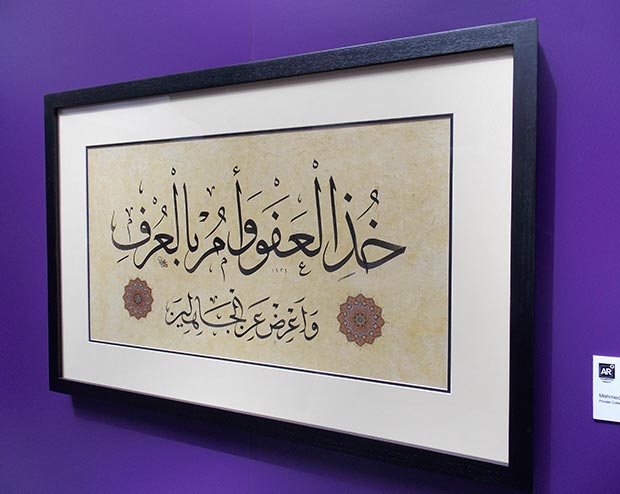 خُذِ الْعَفْوَ وَأْمُرْ بِالْعُرْفِ
١٤٣٤
وَأَعْرِضْ عَنِ الْجَاهِلِينَ
AR
Mehmed
Private Colle